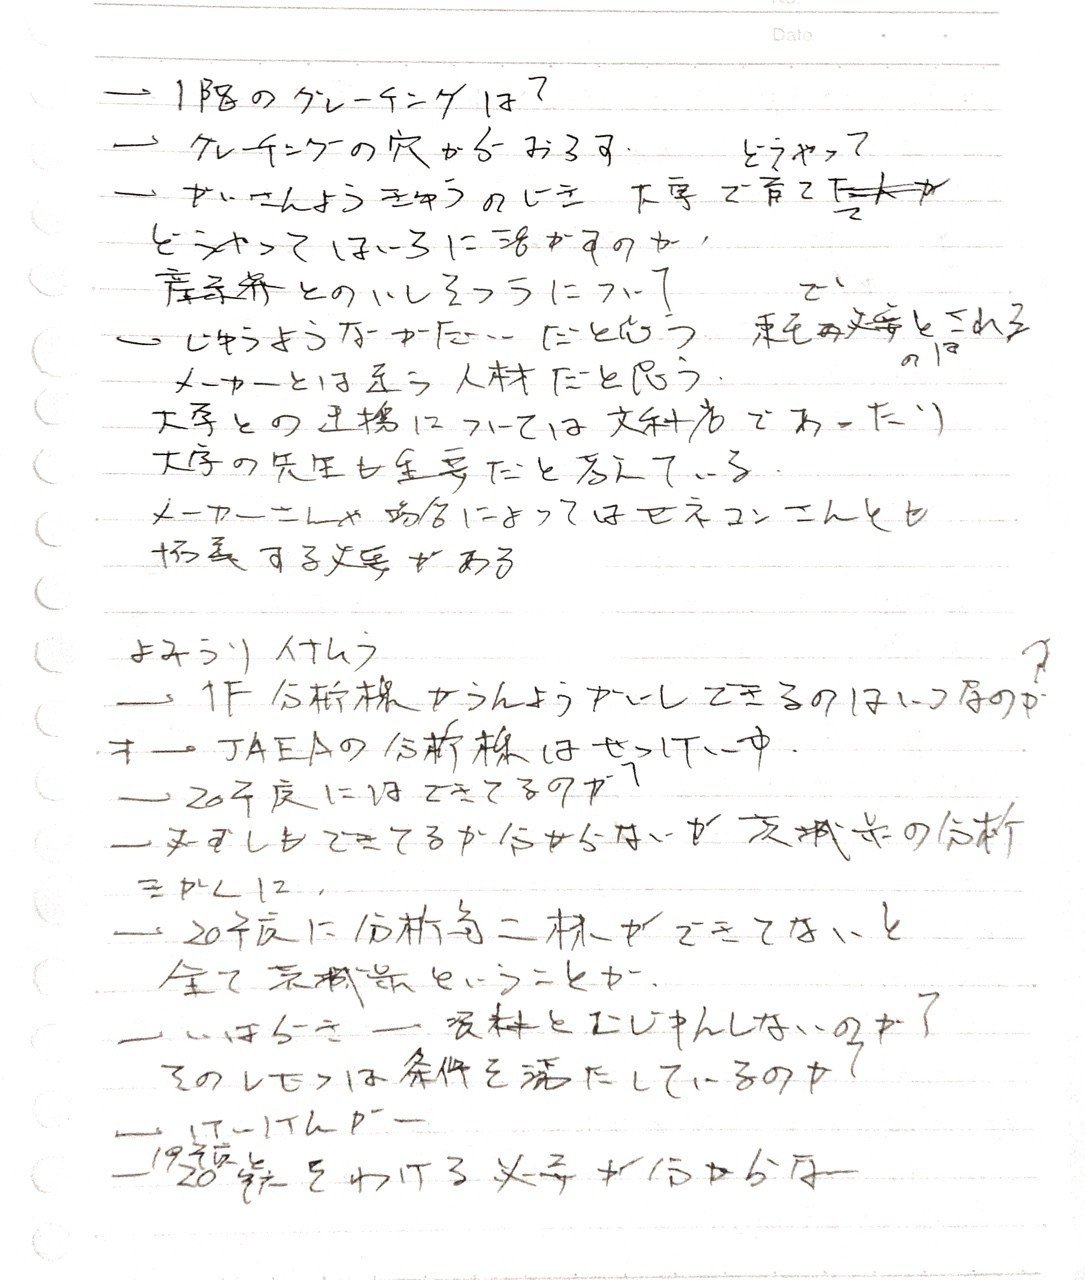 Date
→ 1階のグレーチングは?
→ グレーチングの穴からおろす.
どうやって
→ かいさんようきゅうのじき 大学で育て
どうやってはいろに活かすのか,
産業界とのいしそつうについて
で
→ じゅうようなかだい だと思う 東電
必要とされる
のは
メーカーとは違う人材だと思う.
大学との連携については文科省であったり
大学の先生も重要だと考えている.
メーカーさんや場合によってはゼネコンさんとも
協議する必要がある
よみうり
→ 1F 分析棟がうんようかいしできるのはいつなのか?
オ → JAEAの分析棟はせっけい中.
→ 20年度にはできてるのか?
→ 必ずしもできてるか分からないが 茨城県の分析
きかんに.
→ 20年度に分析第二棟ができてないと
全て茨城県ということか.
→ いばらき 資料とむじゅんしないのか?
そのしせつは条件を満たしているのか?
→ けーけんが ー
19年度と
→ 20年度をわける必要が分からない